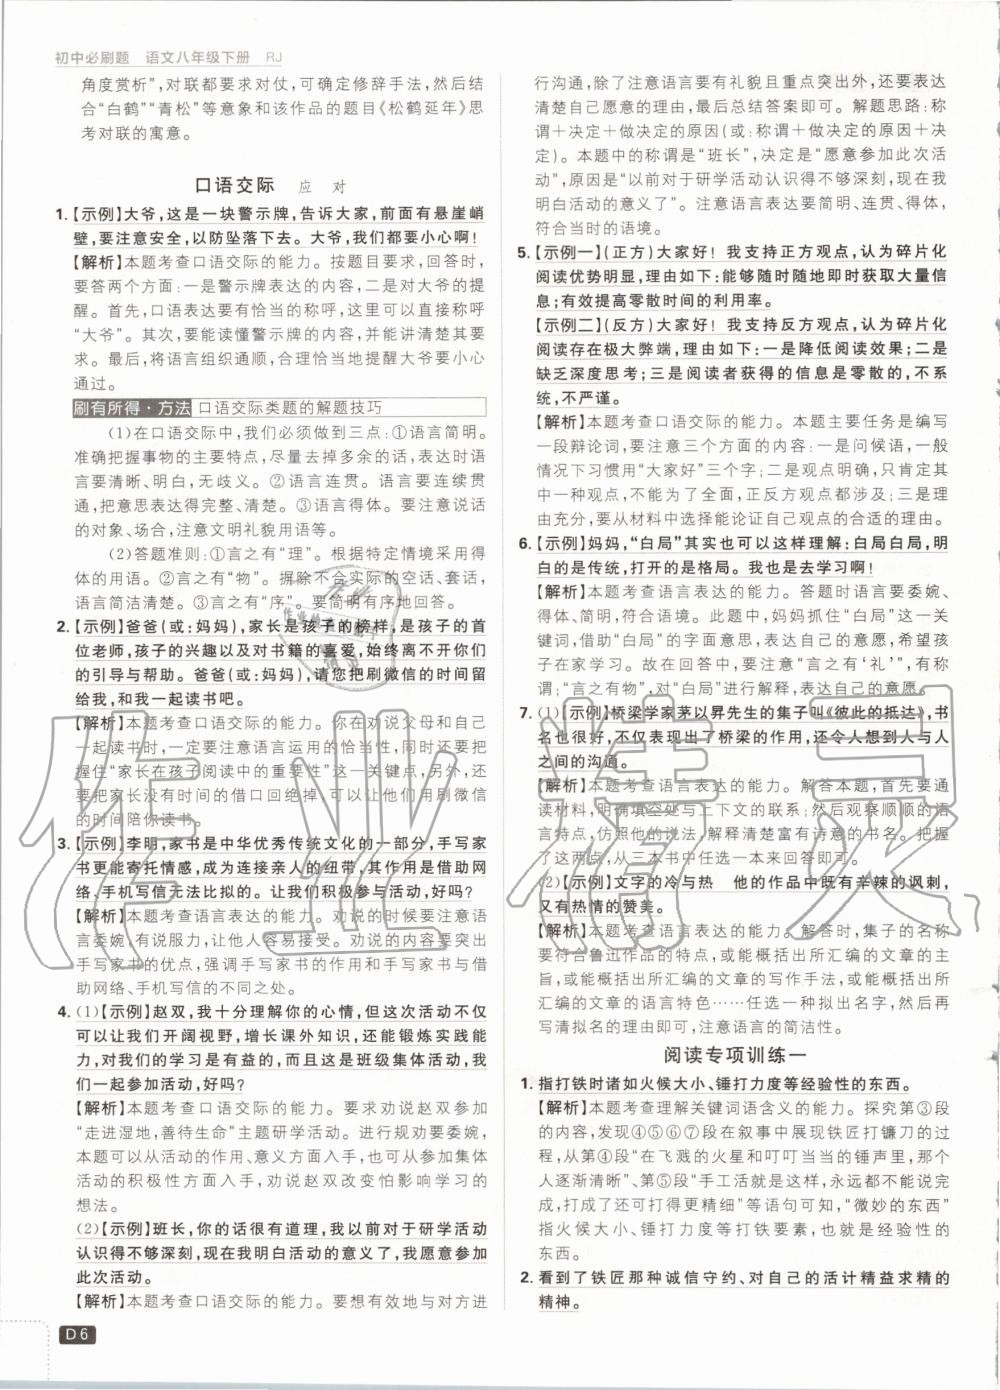 初中必刷题　语文八年级下册　RJ
角度赏析”，对联都要求对仗，可确定修辞手法，然后结
合“白鹤”“青松”等意象和该作品的题目《松鹤延年》思
考对联的寓意。
口语交际　应　对
1.【示例】大爷，这是一块警示牌，告诉大家，前面有悬崖峭
壁，要注意安全，以防坠落下去。大爷，我们都要小心啊！
【解析】本题考查口语交际的能力。按题目要求，回答时，
要答两个方面：一是警示牌表达的内容，二是对大爷的提
醒。首先，口语表达要有恰当的称呼，这里可以直接称呼
“大爷”。其次，要能读懂警示牌的内容，并能讲清楚其要
求。最后，将语言组织通顺，合理恰当地提醒大爷要小心
通过。
刷有所得·方法 口语交际类题的解题技巧
(1)在口语交际中，我们必须做到三点：①语言简明。
准确把握事物的主要特点，尽量去掉多余的话，表达时语
言要清晰、明白，无歧义。②语言连贯。语言要连续贯
通，把意思表达得完整、清楚。③语言得体。要注意说话
的对象、场合，注意文明礼貌用语等。
(2)答题准则：①言之有“理”。根据特定情境采用得
体的用语。②言之有“物”。摒除不合实际的空话、套话，
语言简洁清楚。③言之有“序”。要简明有序地回答。
2.【示例】爸爸(或：妈妈)，家长是孩子的榜样，是孩子的首
位老师，孩子的兴趣以及对书籍的喜爱，始终离不开你们
的引导与帮助。爸爸(或：妈妈)，请您把刷微信的时间留
给我，和我一起读书吧。
【解析】本题考查口语交际的能力。你在劝说父母和自己
一起读书时，一定要注意语言运用的恰当性，同时还要把
握住“家长在孩子阅读中的重要性”这一关键点，另外，还
要把家长没有时间的借口回绝掉，可以让他们用刷微信
的时间陪你读书。
3.【示例】李明，家书是中华优秀传统文化的一部分，手写家
书更能寄托情感，成为连接亲人的纽带，其作用是借助网
络、手机写信无法比拟的。让我们积极参与活动，好吗？
【解析】本题考查语言表达的能力。劝说的时候要注意语
言委婉，有说服力，让他人容易接受。劝说的内容要突出
手写家书的优点，强调手写家书的作用和手写家书与借
助网络、手机写信的不同之处。
4.(1)【示例】赵双，我十分理解你的心情，但这次活动不仅
可以让我们开阔视野，增长课外知识，还能锻炼实践能
力，对我们的学习是有益的，而且这是班级集体活动，我
们一起参加活动，好吗？
【解析】本题考查口语交际的能力。要求劝说赵双参加
“走进湿地，善待生命”主题研学活动。进行规劝要委婉，
本题可以从活动的作用、意义方面入手，也可从参加集体
活动的积极性方面入手，劝说赵双改变怕影响学习的
想法。
(2)【示例】班长，你的话很有道理，我以前对于研学活动
认识得不够深刻，现在我明白活动的意义了，我愿意参加
此次活动。
【解析】本题考查口语交际的能力。要想有效地与对方进
D6
行沟通，除了注意语言要有礼貌且重点突出外，还要表达
清楚自己愿意的理由，最后总结答案即可。解题思路：称
谓＋决定＋做决定的原因(或：称谓＋做决定的原因＋决
定)。本题中的称谓是“班长”，决定是“愿意参加此次活
动”，原因是“以前对于研学活动认识得不够深刻，现在我
明白活动的意义了”。注意语言表达要简明、连贯、得体，
符合当时的语境。
5.【示例一】(正方)大家好！我支持正方观点，认为碎片化
阅读优势明显，理由如下：能够随时随地即时获取大量信
息；有效提高零散时间的利用率。
【示例二】(反方)大家好！我支持反方观点，认为碎片化
阅读存在极大弊端，理由如下：一是降低阅读效果；二是
缺乏深度思考；三是阅读者获得的信息是零散的，不系
统，不严谨。
【解析】本题考查口语交际的能力。本题主要任务是编写
一段辩论词，要注意三个方面的内容：一是问候语，一般
情况下习惯用“大家好”三个字；二是观点明确，只肯定其
中一种观点，不能为了全面，正反方观点都涉及；三是理
由充分，要从材料中选择能论证自己观点的合适的理由。
6.【示例】妈妈，“白局”其实也可以这样理解：白局白局，明
白的是传统，打开的是格局。我也是去学习啊！
【解析】本题考查语言表达的能力。答题时语言要委婉、
得体、简明，符合语境。此题中，妈妈抓住“白局”这一关
键词，借助“白局”的字面意思，表达自己的意愿，希望孩
子在家学习。故在回答中，要注意“言之有‘礼’”，有称
谓；“言之有物”，对“白局”进行解释，表达自己的意愿。
7.(1)【示例】桥梁学家茅以昇先生的集子叫《彼此的抵达》，书
名也很好，不仅表现出了桥梁的作用，还令人想到人与人
之间的沟通。
【解析】本题考查语言表达的能力。解答本题，首先要通
读材料，明确填空处与上下文的联系；然后观察顺顺的语
言特点，仿照他的说法，解释清楚富有诗意的书名。把握
了这两点，从三本书中任选一本来回答即可。
(2)【示例】文字的冷与热　他的作品中既有辛辣的讽刺，
又有热情的赞美。
【解析】本题考查语言表达的能力。解答时，集子的名字
要符合鲁迅作品的特点，或能概括出所汇编的文章的主
旨，或能概括出所汇编的文章的写作手法，或能概括出所
汇编的文章的语言特色……任选一种拟出名字，然后再
写清拟名的理由即可，注意语言的简洁性。
阅读专项训练一
1.指打铁时诸如火候大小、锤打力度等经验性的东西。
【解析】本题考查理解关键词语含义的能力。探究第③段
的内容，发现④⑤⑥⑦段在叙事中展示了铁匠打镰刀的过
程，从第④段“在飞溅的火星和叮叮当当的锤声里，那些
个人逐渐清晰”、第⑤段“手工活就是这样，永远都不能说
完成，打成了还可打得更精细”等语句可知，“微妙的东西”
指火候大小、锤打力度等打铁要素，也就是经验性的
东西。
2.看到了铁匠那种诚信守约、对自己的活计精益求精的
精神。
作业精灵